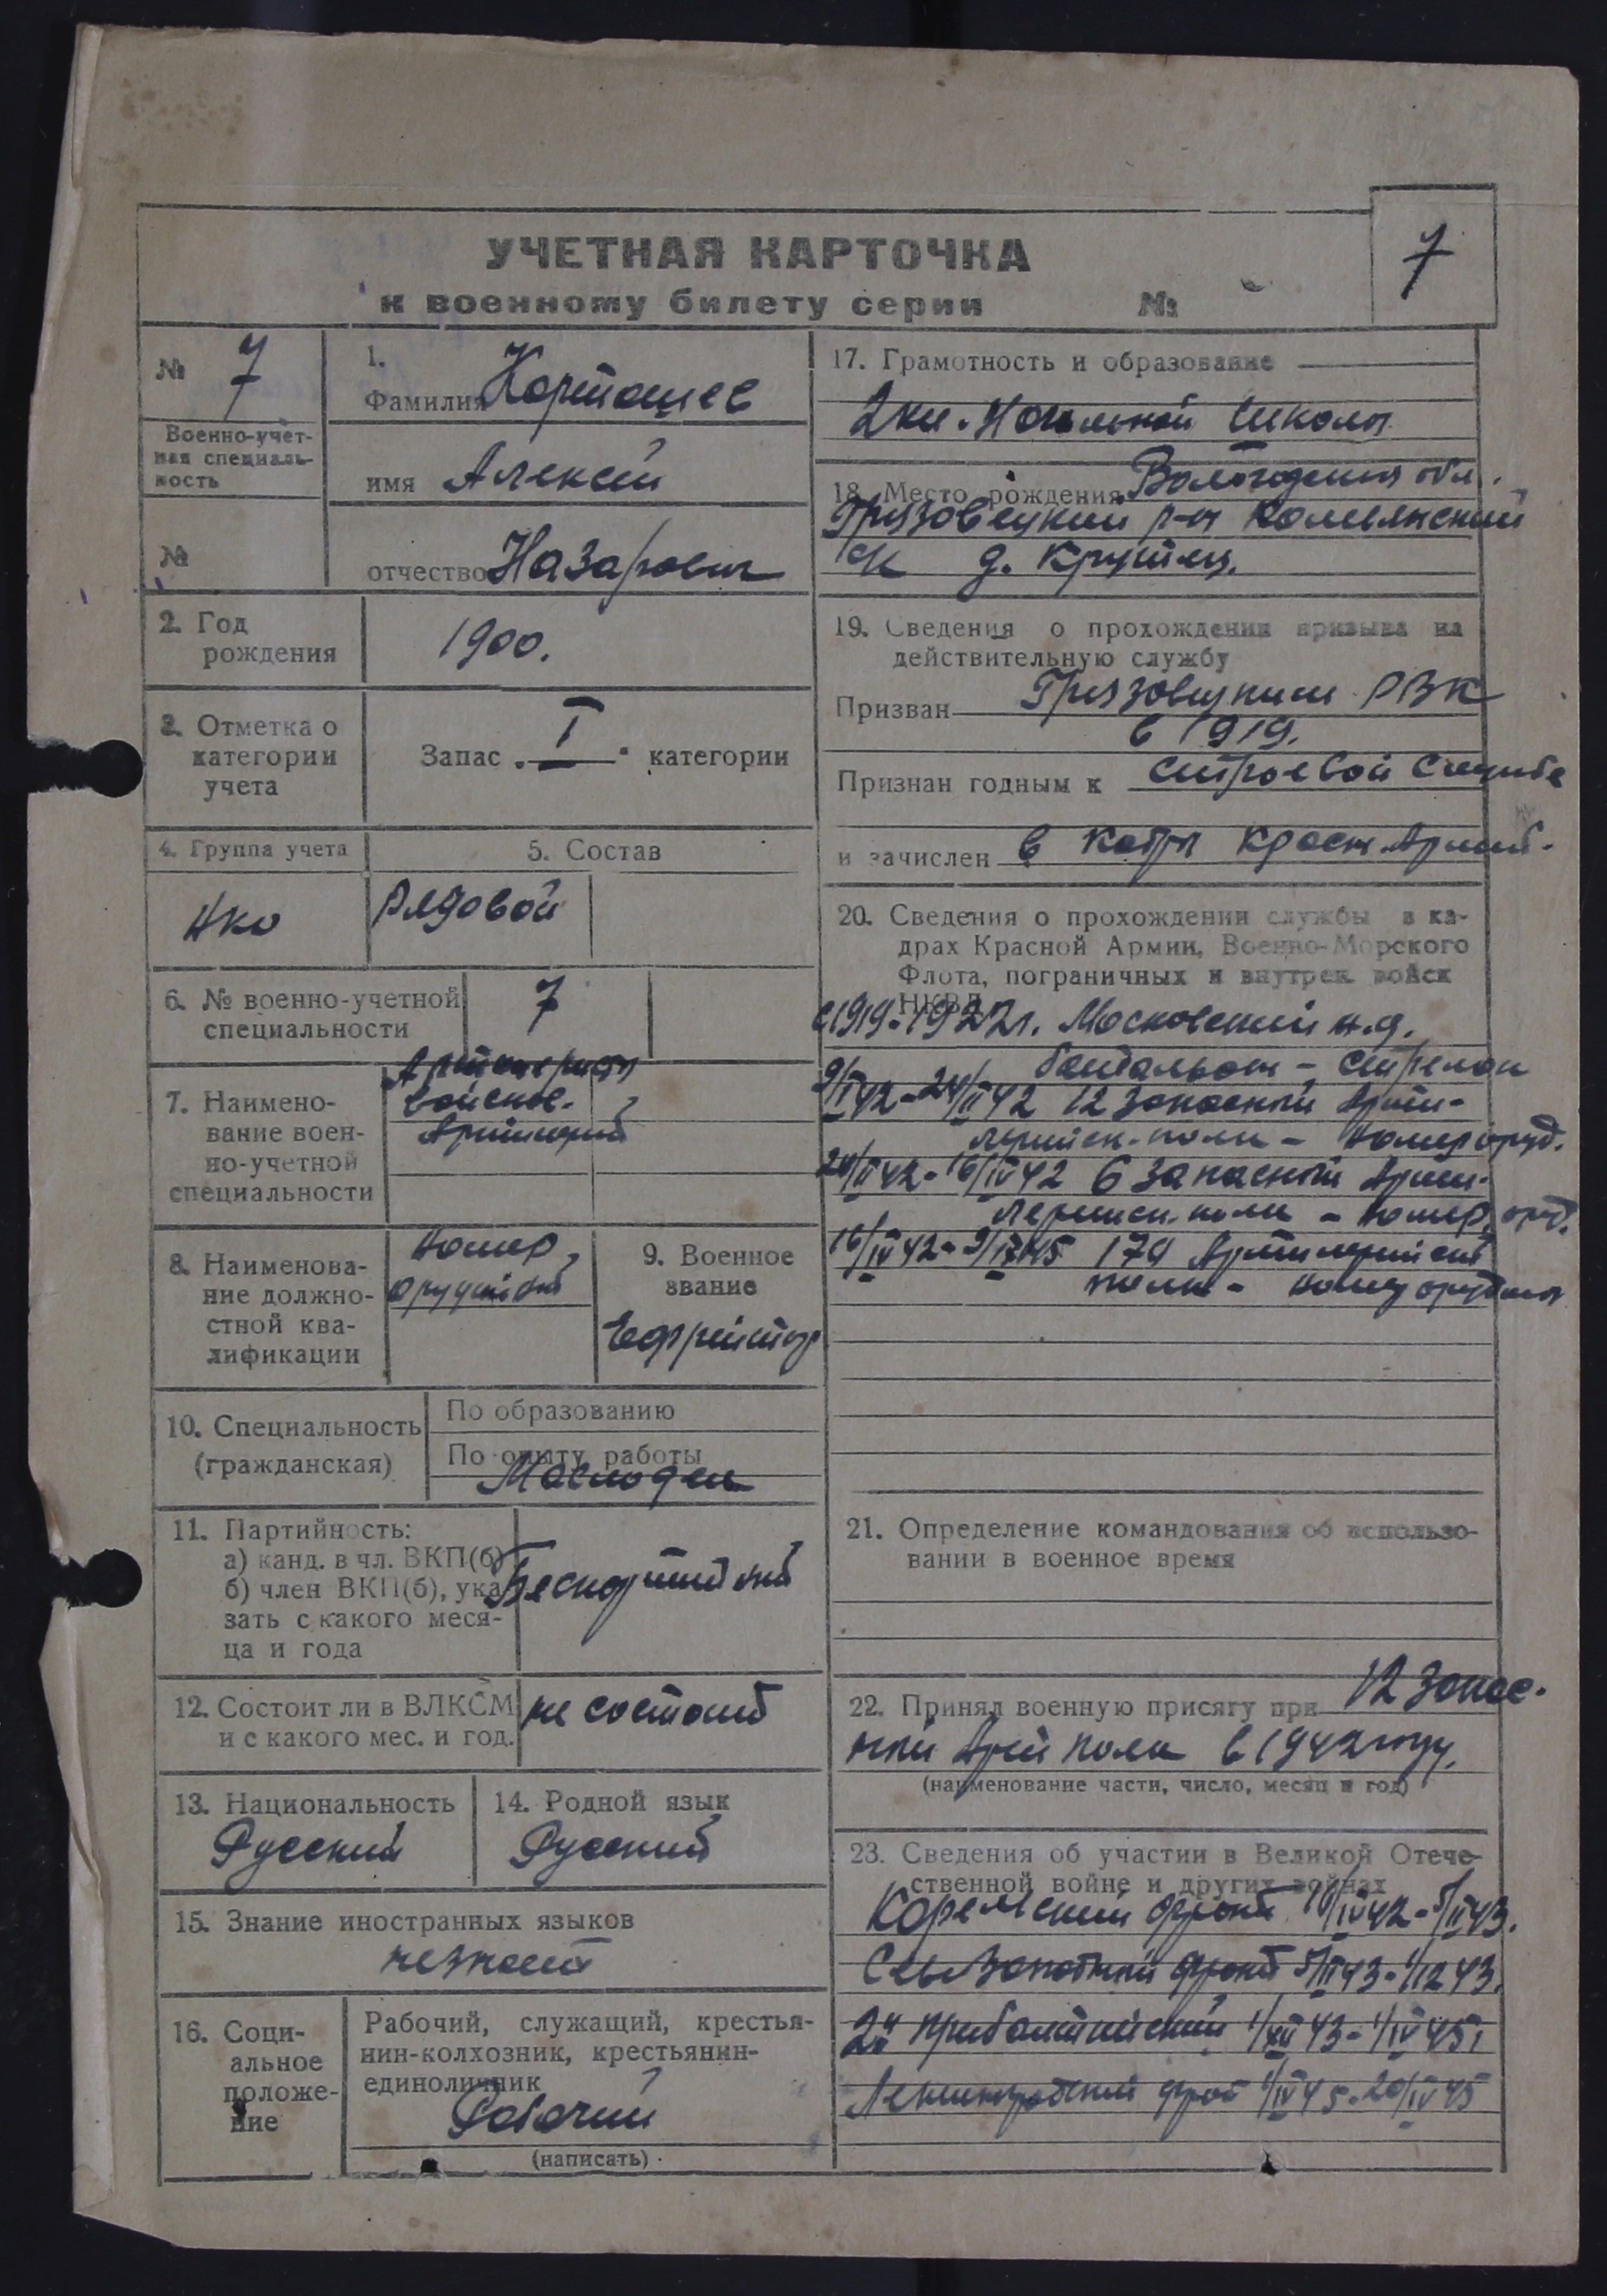 УЧЕТНАЯ КАРТОЧКА
к военному билету серии №
7
№ 7
Военно-учет-
ная специаль-
ность
№
1.
Фамилия Карташев
имя Алексей
отчество Назарович
2. Год
рождения
1900.
3. Отметка о
категории
учета
Запас „ I " категории
4. Группа учета
5. Состав
НКО
Рядовой
6. № военно-учетной
специальности
7
7. Наимено-
вание воен-
но-учетной
специальности
войсков.
8. Наименова-
ние должно-
стной ква-
лификации
Номер
9. Военное
звание
Ефрейтор
10. Специальность
(гражданская)
По образованию
По опыту работы
Маслодел
11. Партийность:
а) канд. в чл. ВКП(б)
б) член ВКП(б), ука-
зать с какого меся-
ца и года
Беспартийный
12. Состоит ли в ВЛКСМ
и с какого мес. и год.
не состоит
13. Национальность
Русский
14. Родной язык
Русский
15. Знание иностранных языков
не знает
16. Соци-
альное
положе-
ние
Рабочий, служащий, крестья-
нин-колхозник, крестьянин-
единоличник
Рабочий
(написать)
17. Грамотность и образование
2 кл. Начальной школы
18. Место рождения Вологодская обл.
Грязовецкий р-н
д. Крутец.
19. Сведения о прохождении призыва на
действительную службу
Призван Грязовецким РВК
в 1919.
Признан годным к строевой службе
и зачислен в кадры Красн. Армии.
20. Сведения о прохождении службы в ка-
драх Красной Армии, Военно-Морского
Флота, пограничных и внутрен. войск
НКВД
с 1919-1922 г. Московский
батальон - стрелок
9/I 42-24/II 42 12 запасный Арти-
лерийск. полк - номер оруд.
24/II 42-16/IV 42 6 запасный Арти-
лерийск. полк - номер. оруд.
16/IV 42- 174 Артилерийский
полк - номер орудия
21. Определение командования об использо-
вании в военное время
22. Принял военную присягу при 12 запас-
ный Арт полк в 1942 году.
(наименование части, число, месяц и год)
23. Сведения об участии в Великой Отече-
ственной войне и других войнах
Карельский фронт 16/IV 42-5/II 43.
Сев Западный фронт 5/II 43-1/12 43.
2й Прибалтийский 1/XII 43-1/IV 45
Ленинградский 1/IV 45-20/IV 45